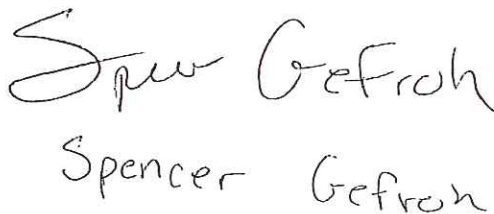 Spencer Gefroh
Spencer Gefroh